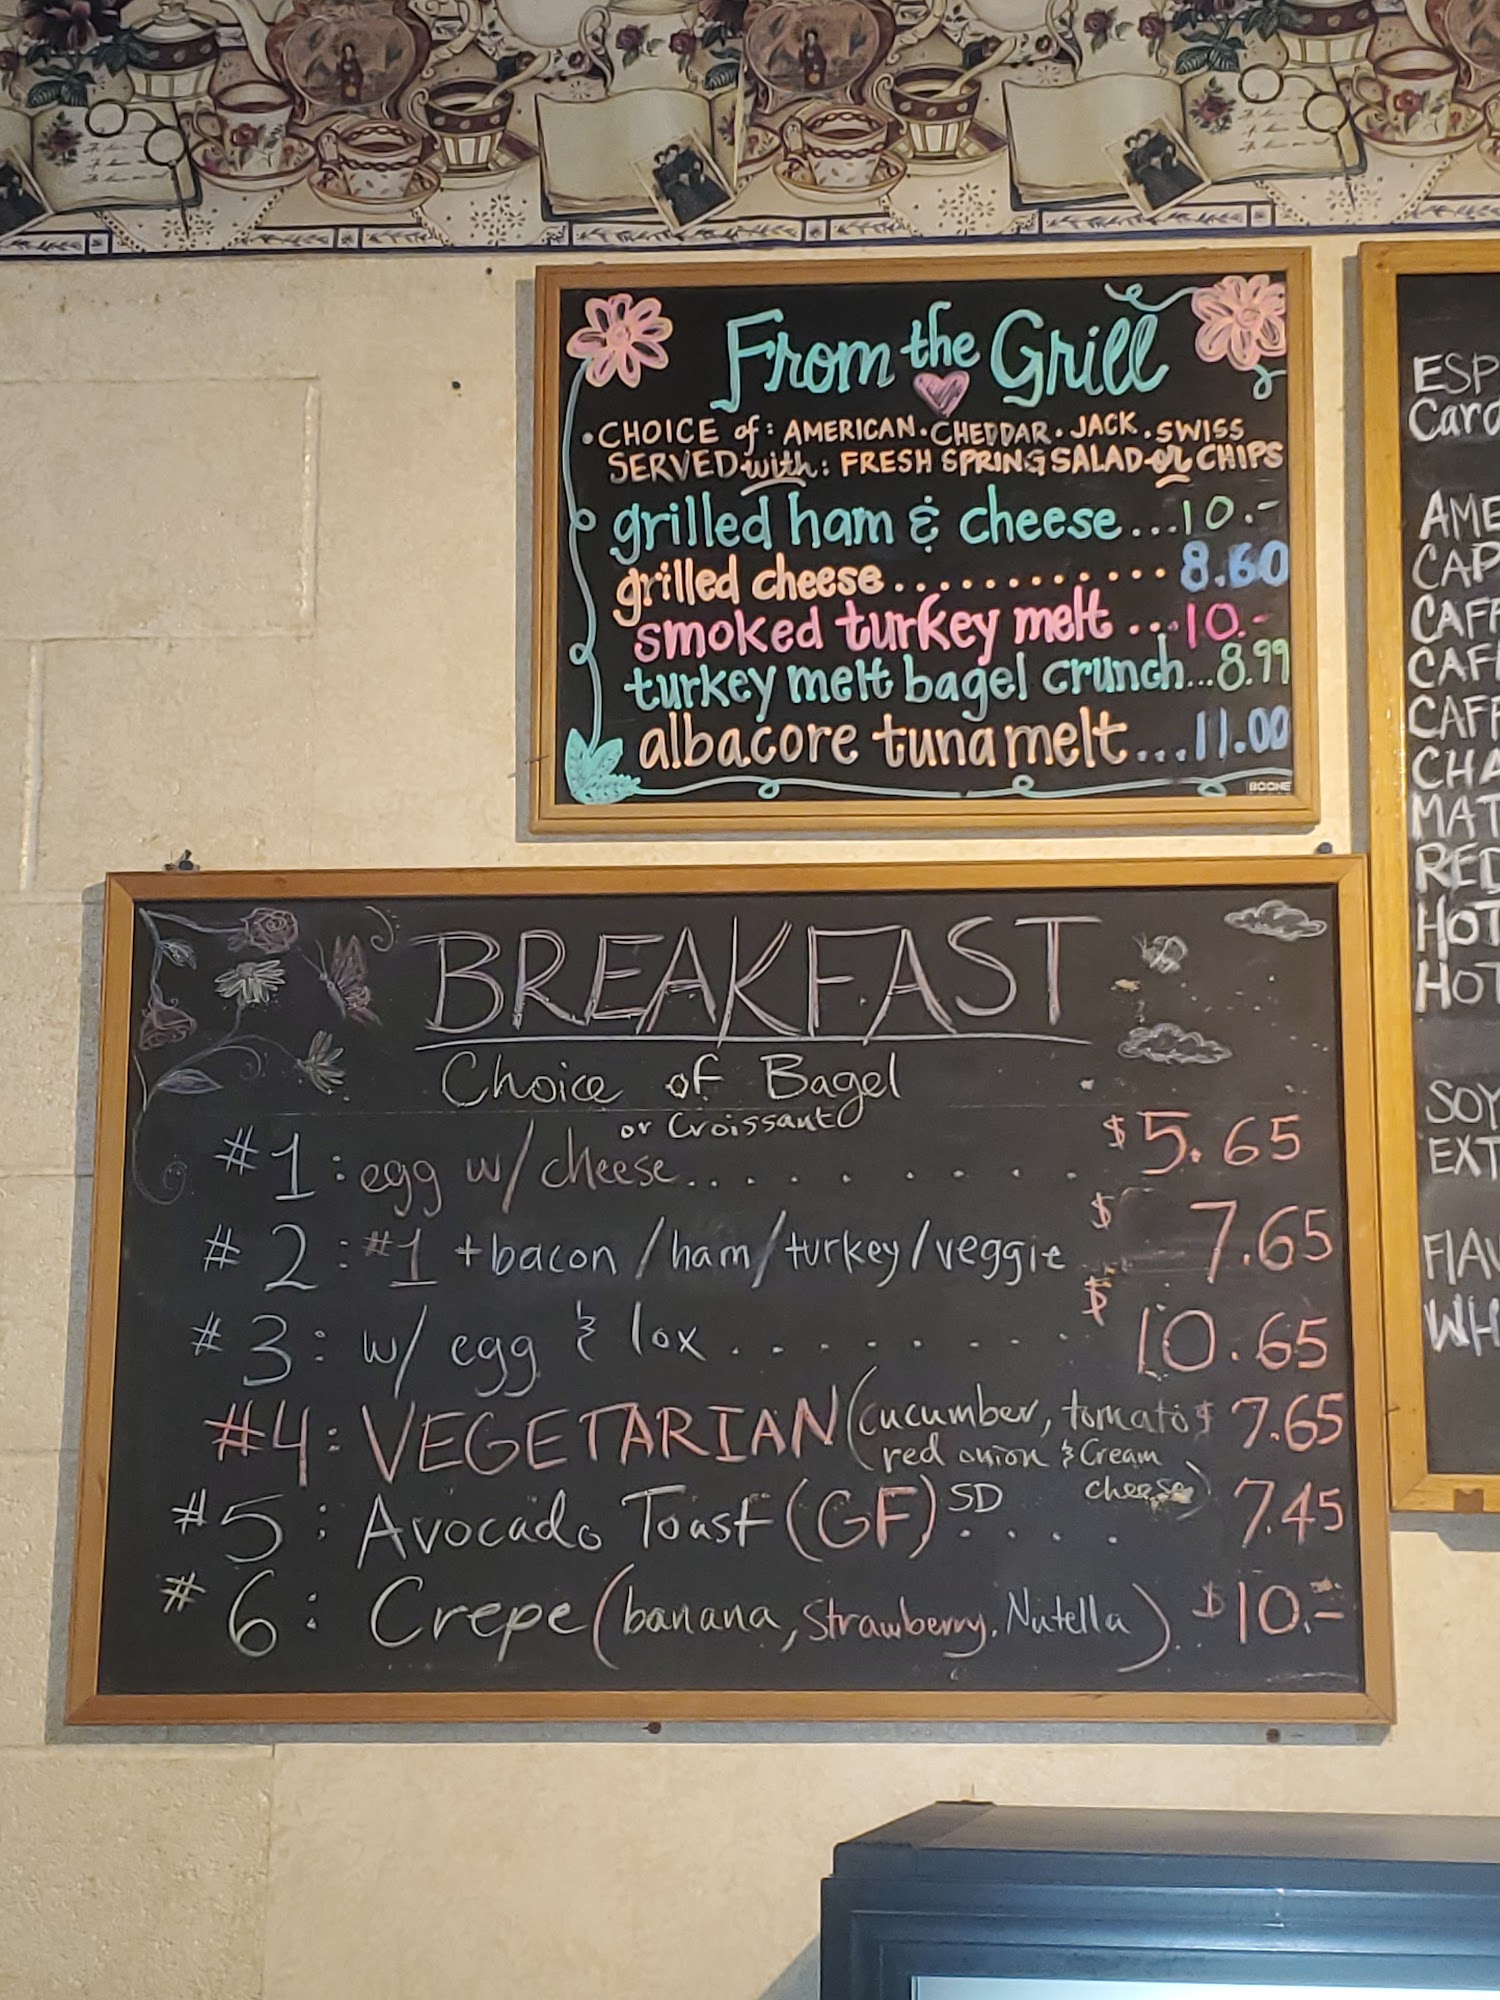 From the Grill
• CHOICE of: AMERICAN · CHEDDAR · JACK · SWISS
SERVED with: FRESH SPRING SALAD or CHIPS
grilled ham & cheese...10.-
grilled cheese............8.60
smoked turkey melt...10.-
turkey melt bagel crunch...8.99
albacore tuna melt...11.00
BOONE
BREAKFAST
Choice of Bagel
or Croissant
#1: egg w/ cheese......... $5.65
#2: #1 + bacon/ham/turkey/veggie $7.65
#3: w/ egg & lox........ $10.65
#4: VEGETARIAN (cucumber, tomato $7.65
red onion & Cream
cheese)
#5: Avocado Toast (GF) SD .... 7.45
#6: Crepe (banana, Strawberry, Nutella) $10.-
ESP
Card
AME
CAP
CAFF
CAFF
CAFF
CHA
MAT
RED
HOT
HOT
SOY
EXT
FlAV
WH